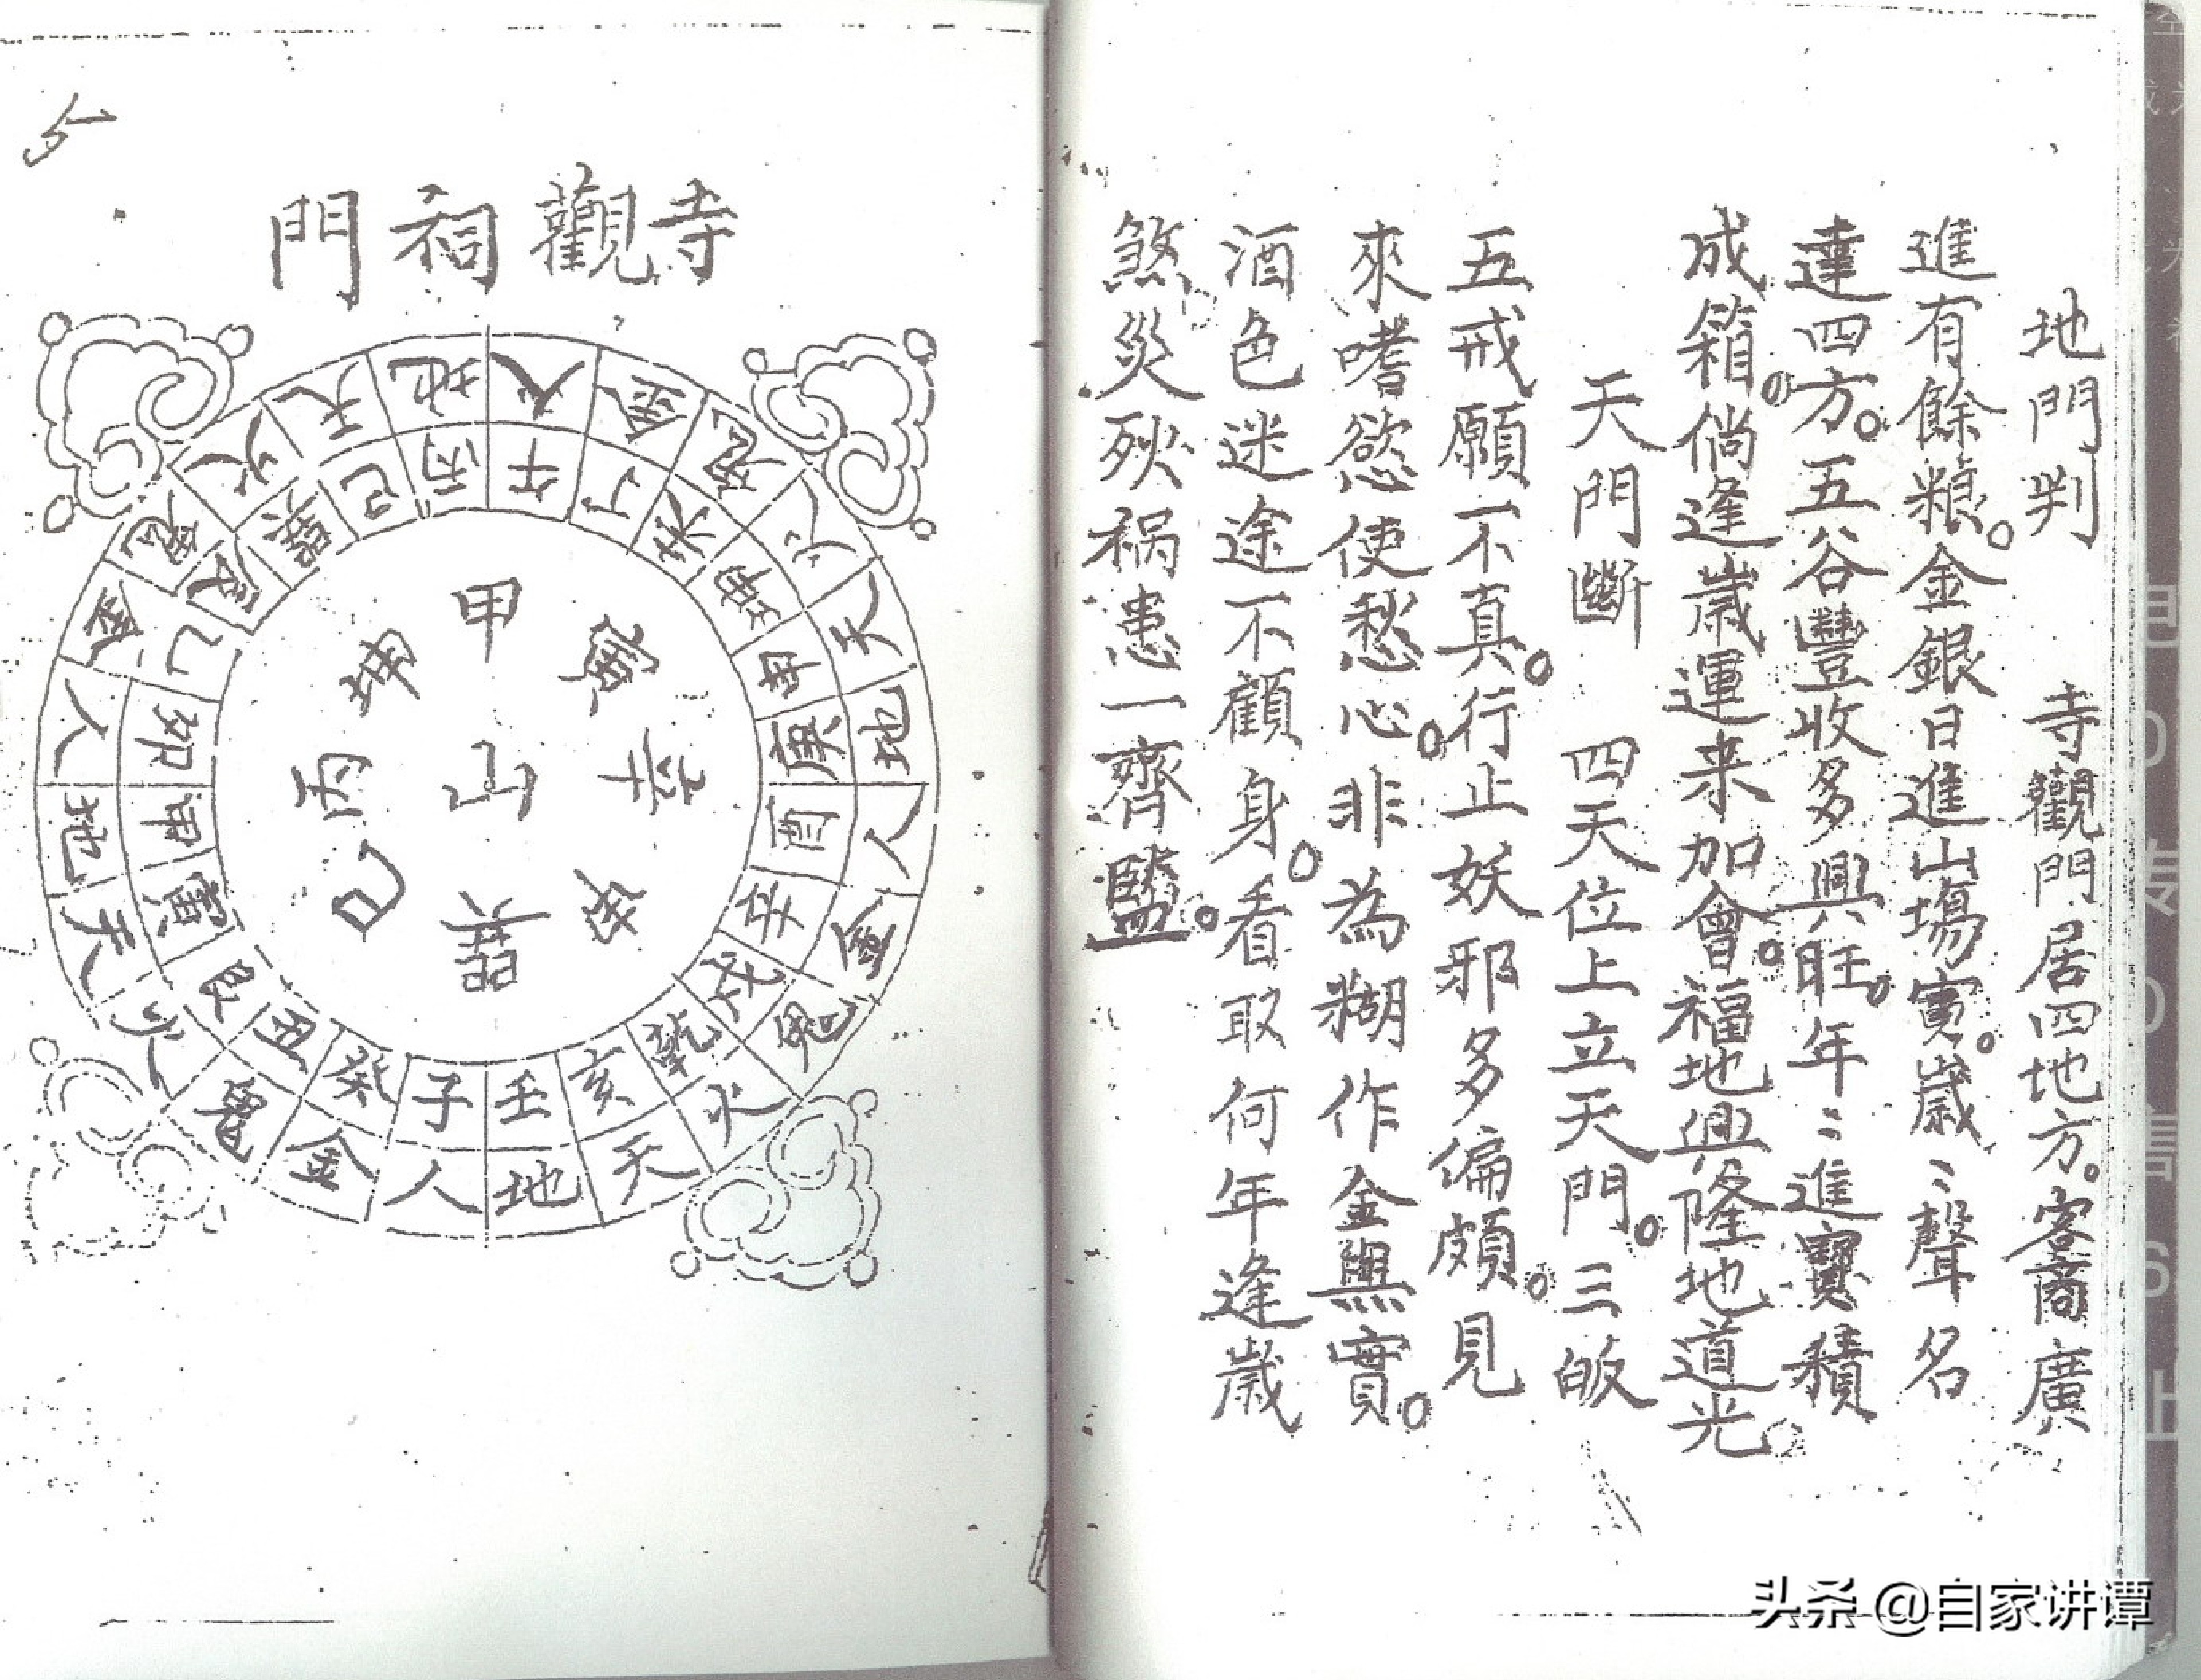 地門判　寺觀門居四地方。客商廣
進有餘粮。金銀日進山塲實。歲〻聲名
達四方。五谷豐收多興旺。年〻進寶積
成箱。倘逢歲運来加會。福地興隆地道光。
天門斷　四天位上立天門。三皈
五戒願不真。行止妖邪多偏頗。見
來嗜慾使愁心。非為糊作金與實。
酒色迷途不顧身。看取何年逢歲
煞災殃禍患一齊
寺觀祠門
天地人金鬼火天地人金鬼火天地人金鬼火天地人金鬼火
巳丙午丁未坤申庚酉辛戌乾亥壬子癸丑艮寅甲卯乙辰巽
甲
寅
辛
戌
巽
巳
丙
山
头条 @自家讲谭